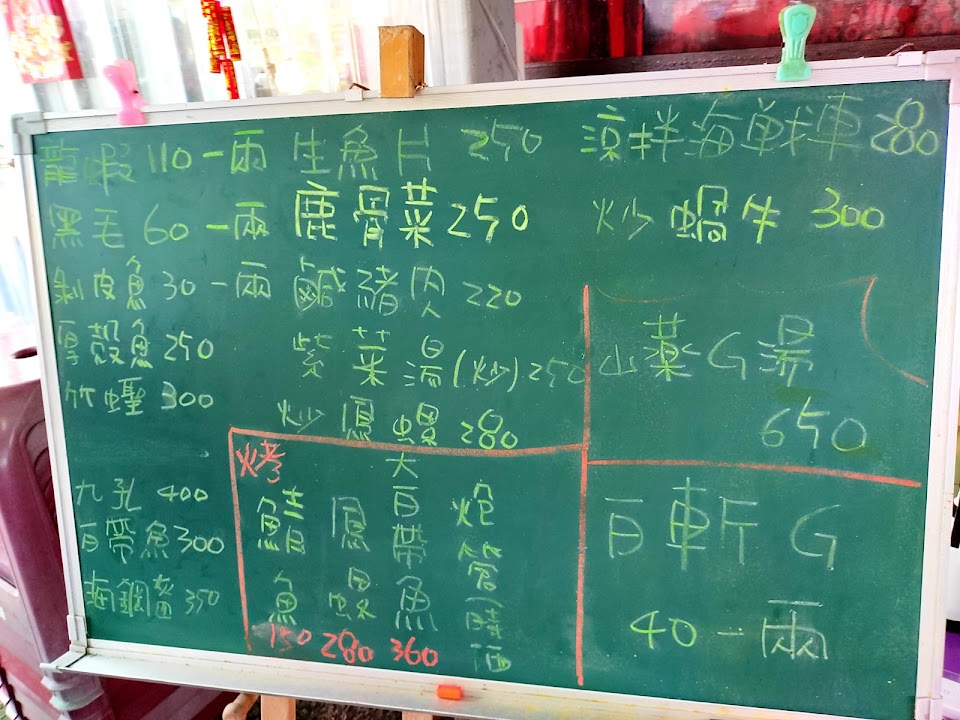 龍蝦 110 一兩
黑毛 60 一兩
剝皮魚 30 一兩
厚殼魚 250
竹蟶 300
九孔 400
白帶魚 300
生魚片 250
鹿骨菜 250
鹹豬肉 220
紫菜湯(炒) 250
炒鳳螺 280
涼拌海戰車 280
炒蝸牛 300
山藥G湯
650
烤
鮭魚 150
鳳螺 280
大白帶魚 360
白斬G
40 一兩